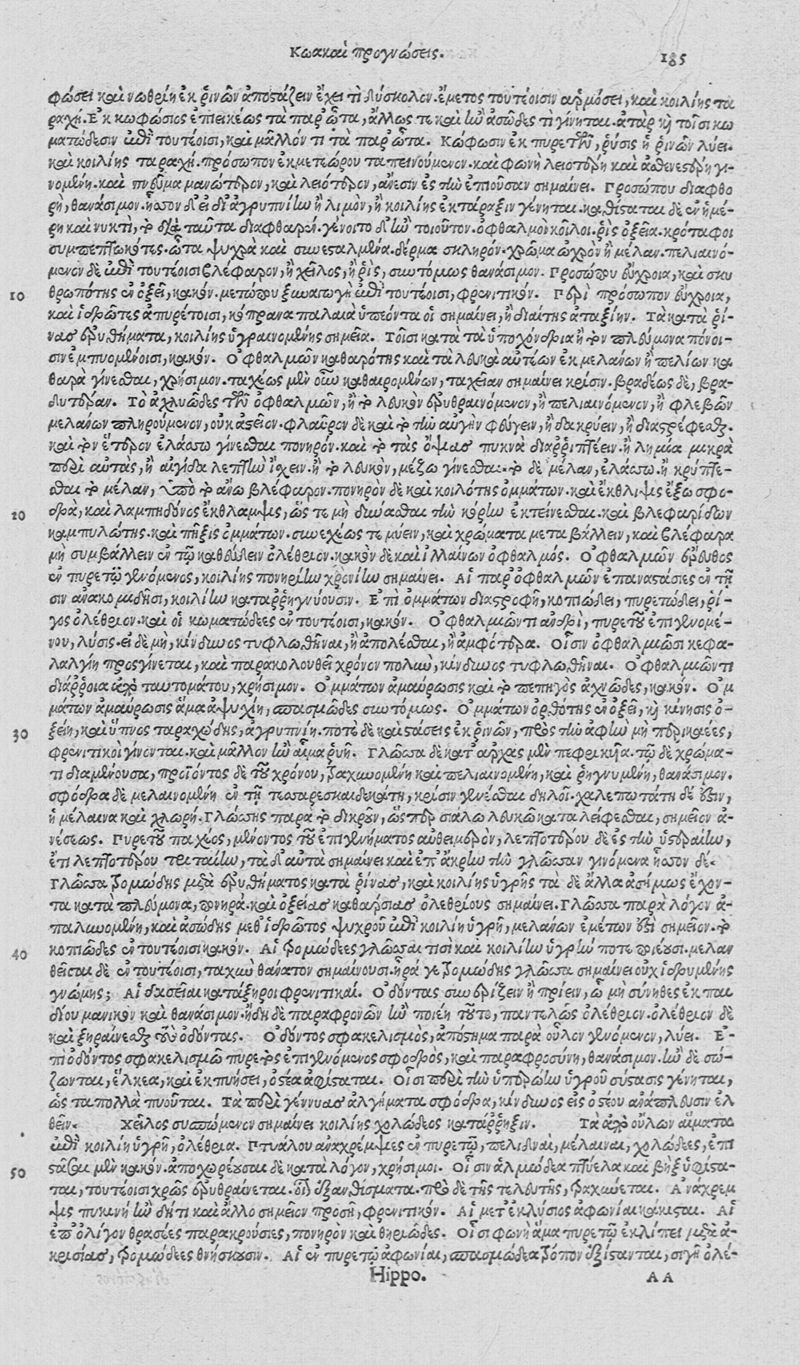 Κωακαὶ προγνώσεις. 185
φώσει καὶ νωθρίη ἐκ ῥινῶν ἀποστάζειν ἔχει τὶ δύσκολον. ἔμετος τουτέοισιν ἁρμόσει, καὶ κοιλίης τα
ραχή. Ἐκ κωφώσιος ἐπιεικέως τὰ παρ' ὦτα, ἄλλως τε καὶ ἢν ἀσῶδές τι γίνηται. ἀτὰρ κὴ τοῖσι κω
ματώδεσιν ἐπὶ τουτέοισι, καὶ μᾶλλόν τι τὰ παρ' ὦτα. Κώφωσιν ἐκ πυρετοῦ, ῥύσις ἢ ῥινῶν λύει.
καὶ κοιλίης ταραχή. πρόσωπον ἐκ μετεώρου ταπεινούμενον. καὶ φωνὴ λειοτέρη καὶ ἀσθενεστέρη γι-
νομένη. καὶ πνεῦμα μανώτερον, καὶ λειότερον, ἄνεσιν ἐς τὴν ἐπιοῦσαν σημαίνει. Προσώπου διαφθο
ρὴ, θανάσιμον. ἧσσον δ' εἰ δι' ἀγρυπνίην ἢ λιμὸν, ἢ κοιλίης ἐκτάραξιν γένηται. καθίσταται δὲ ἐν ἡμέ-
ρῃ καὶ νυκτὶ, τὸ διὰ ταῦτα διαφθαρέν. γένοιτο δ' ἂν τοιοῦτον. ὀφθαλμοὶ κοῖλοι. ῥὶς ὀξεῖα. κρόταφοι
συμπεπτωκότες. ὦτα ψυχρὰ καὶ συνεσταλμένα. δέρμα σκληρόν. χρῶμα ὠχρὸν ἢ μέλαν. πελιαινό-
μενον δὲ ἐπὶ τουτέοισι βλέφαρον, ἢ χεῖλος, ἢ ῥὶς, συντόμως θανάσιμον. Προσώπου εὔχροια, καὶ σκυ
10 θρωπότης ἐν ὀξεῖ, κακόν. μετώπου ξυναγωγὴ ἐπὶ τουτέοισι, φρενιτικόν. Περὶ πρόσωπον εὔχροια,
καὶ ἱδρῶτες ἀπυρέτοισι, κόπρανα παλαιὰ ὑπεόντα οἱ σημαίνει, ἢ διαίτης ἀταξίην. Τὰ κατὰ ῥί-
νας ἐρυθήματα, κοιλίης ὑγραινομένης σημεῖα. Τοῖσι κατὰ τὰ ὑποχόνδρια ἢ τὸν πλεύμονα πόνοι-
σιν ἐμπυομένοισι, κακόν. Ὀφθαλμῶν καθαρότης καὶ τὰ λευκὰ αὐτέων ἐκ μελάνων ἢ πελίων κα
θαρὰ γίνεσθαι, χρήσιμον. ταχέως μὲν οὖν καθαιρομένων, ταχεῖαν σημαίνει κρίσιν. βραδέως δὲ, βρα-
δυτέραν. Τὸ ἀχλυῶδες τῶν ὀφθαλμῶν, ἢ τὸ λευκὸν ἐρυθραινόμενον, ἢ πελιαινόμενον, ἢ φλεβῶν
μελαίνων πληρούμενον, οὐκ ἀστεῖον. φλαῦρον δὲ καὶ τὸ τὴν αὐγὴν φεύγειν, ἢ δακρύειν, ἢ διαστρέφεσθαι.
καὶ τὸν ἕτερον ἐλάσσω γίνεσθαι πονηρόν. καὶ τὸ τὰς ὄψιας πυκνὰ διαρριπτέειν. ἢ λημία μικρὰ
περὶ αὐτὰς, ἢ αἰγίδα λεπτὴν ἴσχειν. ἢ τὸ λευκὸν, μέζω γίνεσθαι. τὸ δὲ μέλαν, ἐλάσσω. ἢ κρύπτε-
σθαι τὸ μέλαν, ὑπὸ τὸ ἄνω βλέφαρον. πονηρὸν δὲ καὶ κοιλότης ὀμμάτων. καὶ ἔκθλιψις ἔξω σφο-
20 δρὰ, καὶ λαμπηδόνος ἔκθλαμψις, ὥς τε μὴ δύνασθαι τὴν κόρην ἐκτείνεσθαι. καὶ βλεφαρίδων
καμπυλότης. καὶ πῆξις ὀμμάτων. συνεχέως τε μύειν, καὶ χρώματα μεταβάλλειν, καὶ βλέφαρα
μὴ συμβάλλειν ἐν τῷ καθεύδειν ὀλέθριον. κακὸν δὲ καὶ ἰλλαίνων ὀφθαλμός. Ὀφθαλμῶν ἔρευθος
ἐν πυρετῷ γενόμενος, κοιλίης πονηρίην χρονίην σημαίνει. Αἱ παρ' ὀφθαλμῶν ἐπαναστάσιες ἐν τῇ
σιν ἀνακομιδῇσι, κοιλίην καταρρηγνύουσιν. Ἐπὶ ὀμμάτων διαστροφῇ, κοπιώδει, πυρετώδει, ῥί-
γος ὀλέθριον. καὶ οἱ κωματώδεες ἐν τουτέοισι, κακόν. Ὀφθαλμιῶντι ἀνδρὶ, πυρετοῦ ἐπιγενομέ-
νου, λύσις. εἰ δὲ μὴ, κίνδυνος τυφλωθῆναι, ἢ ἀπολέσθαι, ἢ ἀμφότερα. Οἷσιν ὀφθαλμιῶσι κεφα-
λαλγίη προσγίνεται, καὶ παρακολουθεῖ χρόνον πολὺν, κίνδυνος τυφλωθῆναι. Ὀφθαλμιῶντι
διάρροια ἀπὸ ταυτομάτου, χρήσιμον. Ὀμμάτων ἀμαύρωσις καὶ τὸ πεπηγὸς ἀχλυῶδες, κακόν. Ὀμ
μάτων ἀμαύρωσις ἅμα ἀψυχίῃ, σπασμῶδες συντόμως. Ὀμμάτων ὀρθότης ἐν ὀξεῖ, κὴ κίνησις ὀ-
30 ξείη, καὶ ὕπνος ταραχώδης, ἀγρυπνίη. ποτὲ δὲ καὶ στάξιες ἐκ ῥινῶν, πρὸς τὴν ἁφὴν μὴ περικαέες,
φρενιτικοὶ γίνονται. καὶ μᾶλλον ἢν αἷμα ῥυῇ. Γλῶσσα δὲ κατ' ἀρχὰς μὲν πεφρικυῖα. τῷ δὲ χρώμα-
τι διαμένουσα, προϊόντος δὲ τοῦ χρόνου, τραχυνομένη καὶ πελιαινομένη, καὶ ῥηγνυμένη, θανάσιμον.
σφόδρα δὲ μελαινομένη ἐν τῇ τεσσαρεσκαιδεκάτῃ, κρίσιν γενέσθαι δηλοῖ. χαλεπωτάτη δέ ἐστιν,
ἡ μέλαινα καὶ χλωρή. Γλώσσης παρὰ τὸ δίκρουν, ὥσπερ σιάλῳ λευκῷ καταλείφεσθαι, σημεῖον ἀ-
νέσεως. Πυρετοῦ παχέος, μένοντος τοῦ ἐπιγενήματος αὐθειμερὸν, λεπτοτέρου δὲ ἐς τὴν ὑστεραίην,
ἔτι λεπτοτέρου τριταίην, τὰ δ' αὐτὰ σημαίνει καὶ ἐπ' ἄκρην τὴν γλῶσσαν γινόμενα ἧσσον δέ.
Γλῶσσα τρομώδης μετὰ ἐρυθήματος κατὰ ῥῖνας, καὶ κοιλίης ὑγρῆς τὰ δὲ ἄλλα ἀσήμως ἔχον-
τα κατὰ πλεύμονα, πονηρά. καὶ ὀξείας καθάρσιας ὀλεθρίους σημαίνει. Γλῶσσα παρὰ λόγον ἁ-
παλυνομένη, καὶ ἀσώδης μεθ' ἱδρῶτος ψυχροῦ ἐπὶ κοιλίῃ ὑγρῇ, μελάνων ἐμέτων ἐστὶ σημεῖον. τὸ
40 κοπιῶδες ἐν τουτέοισι κακόν. Αἱ τρομώδεες γλῶσσαι τισὶ καὶ κοιλίην ὑγρήν ποτε ποιέουσι. μελαν
θεῖσαι δὲ ἐν τουτέοισι, ταχὺν θάνατον σημαίνουσι. ἦρά γε τρομώδης γλῶσσα σημαίνει οὐχ ἱδρυμένης
γνώμης; Αἱ δασεῖαι κατάξηροι φρενιτικαί. Ὀδόντας συνερίζειν ἢ πρίειν, ᾧ μὴ σύνηθες ἐκ παι
δίου μανικὸν καὶ θανάσιμον. ἤδη δὲ παραφρονῶν ἢν ποιέῃ τοῦτο, παντελῶς ὀλέθριον. ὀλέθριον δὲ
καὶ ξηραίνεσθαι τοὺς ὀδόντας. Ὀδόντος σφακελισμὸς, ἀπόστημα παρὰ οὖλον γενόμενον, λύει. Ἐ-
πὶ ὀδόντος σφακελισμῷ πυρετὸς ἐπιγενόμενος σφοδρὸς, καὶ παραφροσύνη, θανάσιμον. ἢν δὲ σώ-
ζωνται, ἕλκεα, καὶ ἐκπυήσει, ὀστέα ἀφίσταται. Οἷσι περὶ τὴν ὑπερῴην ὑγροῦ σύστασις γένηται,
ὡς τὰ πολλὰ πυοῦται. Τὰ περὶ γένυας ἀλγήματα σφόδρα, κίνδυνος εἰς ὀστέου ἀνάπλευσιν ἐλ
θεῖν. Χεῖλος συσπώμενον σημαίνει κοιλίης χολώδεος κατάρρηξιν. Τὰ ἀπὸ οὔλων αἵματα
ἐπὶ κοιλίῃ ὑγρῇ, ὀλέθρια. Πτυάλου ἀναχρέμψιες ἐν πυρετῷ, πελιδναὶ, μέλαιναι, χολώδεες, ἐπι
50 στᾶσαι μὲν κακόν. ἀποχωρέουσαι δὲ κατὰ λόγον, χρήσιμοι. Οἷσιν ἁλμώδεα πτύελα καὶ βὴξ ὑφίστα-
ται, τουτέοισι χρὼς ἐρυθραίνεται. οἷον ἐξανθίσματα. πρὸ δὲ τῆς τελευτῆς, τραχύνεται. Ἀνάχρεμ
ψις πυκινὴ ἢν δή τι καὶ ἄλλο σημεῖον προσῇ, φρενιτικόν. Αἱ μετ' ἐκλύσιος ἀφωνίαι κάκισται. Αἱ
ἐπ' ὀλίγον θρασέες παρακρούσιες, πονηρὸν καὶ θηριῶδες. Οἷσι φωνὴ ἅμα πυρετῷ ἐκλίπει μετὰ ἀ-
κρισίας, τρομώδεες θνήσκουσιν. Αἱ ἐν πυρετῷ ἀφωνίαι, σπασμώδεα τρόπον ἐξίστανται, σιγῇ ὀλέ-
Hippo. AA